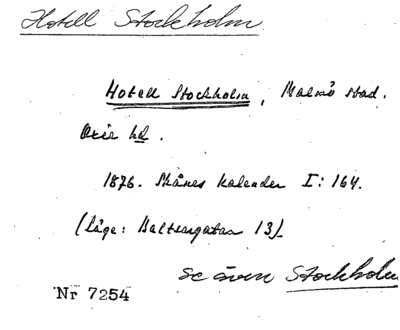 Hotell Stockholm
Hotell Stockholm, Malmö stad.
Oxie hd.
1876. Skånes kalender I: 164.
(Läge: Baltzargatan 13).
se även Stockholm
Nr 7254